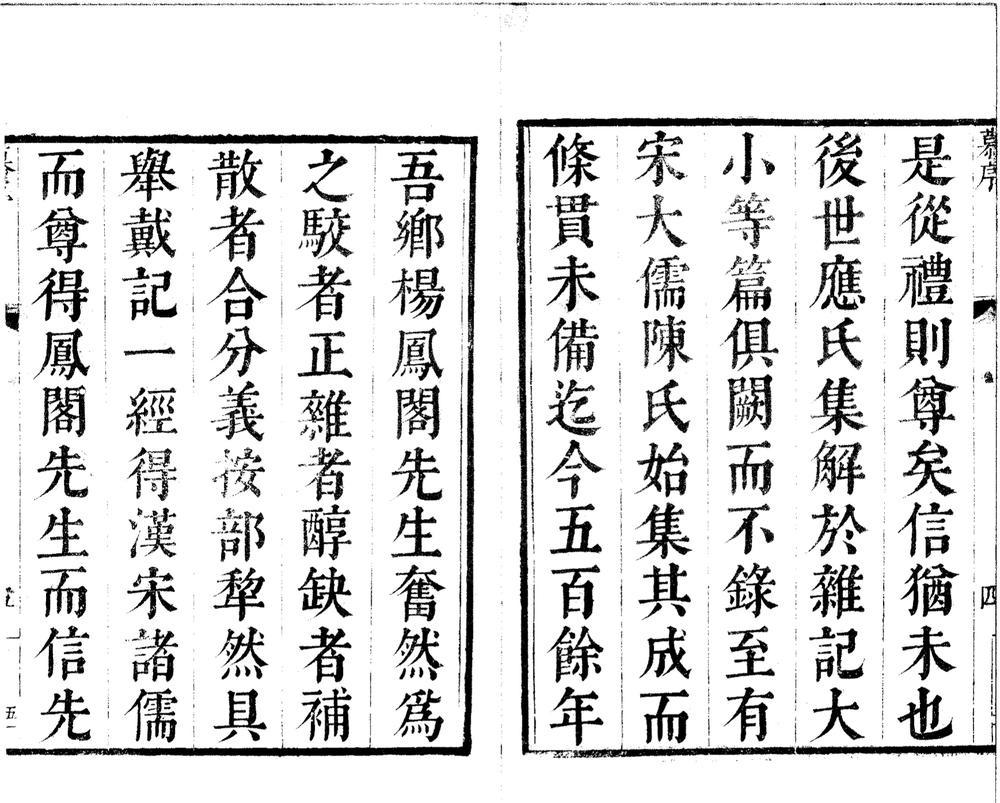 是從禮則尊矣信猶未也
後世應氏集解於雜記大
小等篇俱闕而不錄至有
宋大儒陳氏始集其成而
條貫未備迄今五百餘年
吾鄉楊鳳閣先生奮然爲
之駮者正雜者醇缺者補
散者合分義按部犂然具
舉戴記一經得漢宋諸儒
而尊得鳳閣先生而信先
四
五